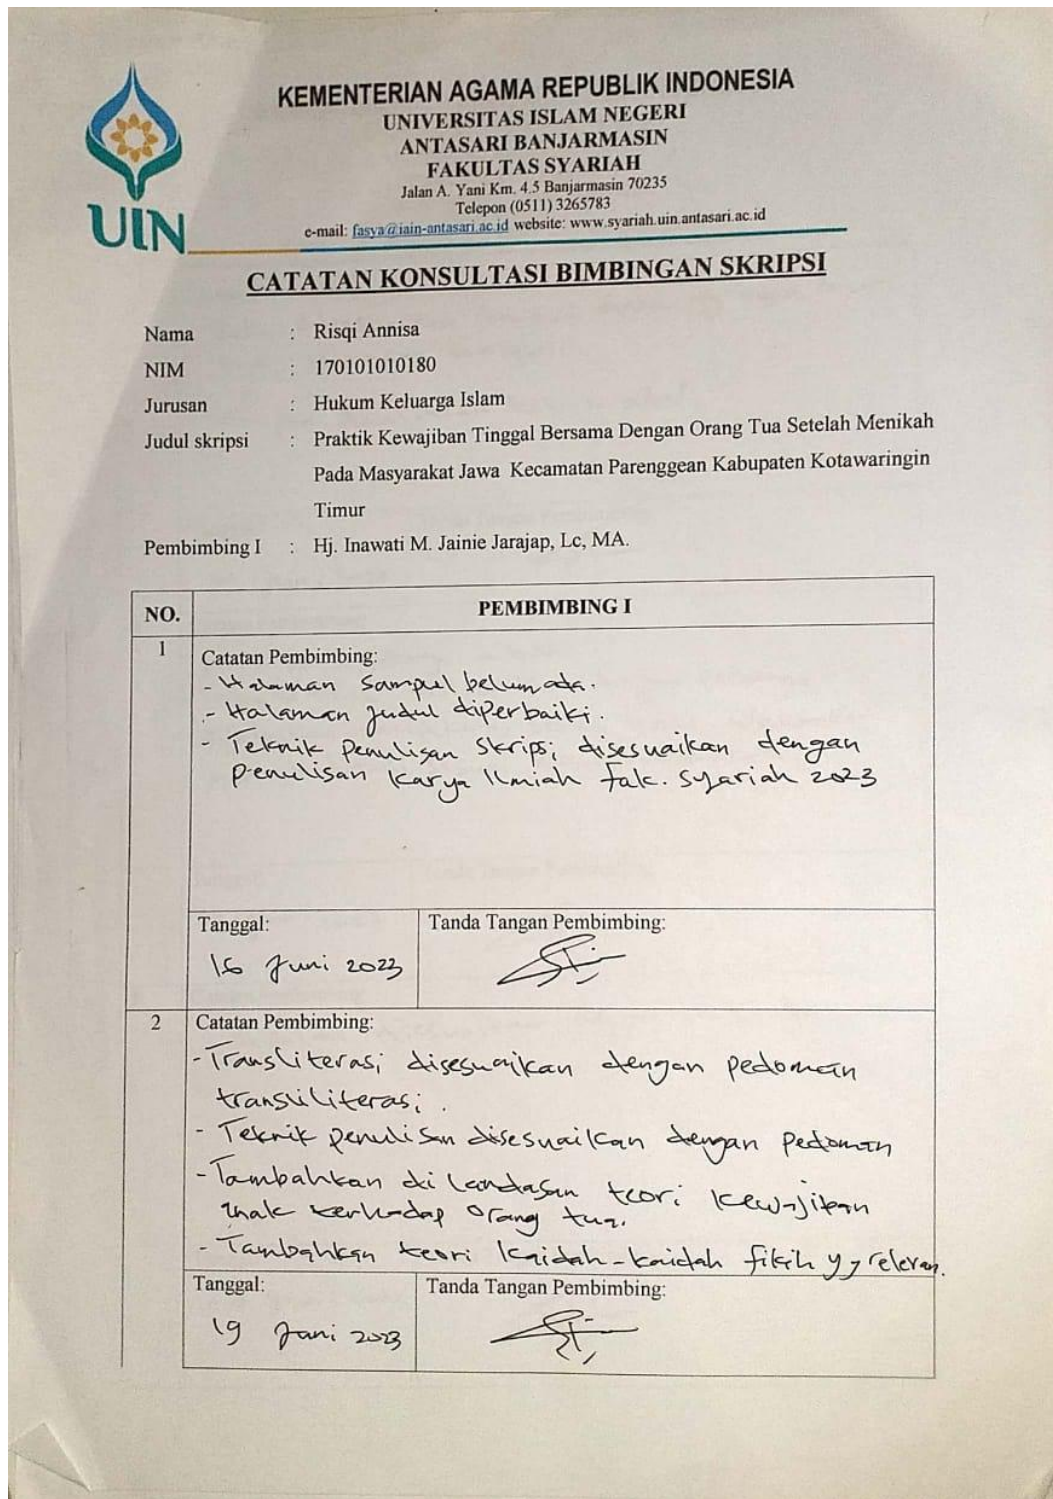 KEMENTERIAN AGAMA REPUBLIK INDONESIA
UNIVERSITAS ISLAM NEGERI
ANTASARI BANJARMASIN
FAKULTAS SYARIAH
Jalan A. Yani Km. 4.5 Banjarmasin 70235
Telepon (0511) 3265783
e-mail: fasya@iain-antasari.ac.id website: www.syariah.uin.antasari.ac.id
UIN
CATATAN KONSULTASI BIMBINGAN SKRIPSI
Nama : Risqi Annisa
NIM : 170101010180
Jurusan : Hukum Keluarga Islam
Judul skripsi : Praktik Kewajiban Tinggal Bersama Dengan Orang Tua Setelah Menikah
Pada Masyarakat Jawa Kecamatan Parenggean Kabupaten Kotawaringin
Timur
Pembimbing I : Hj. Inawati M. Jainie Jarajap, Lc, MA.
NO. PEMBIMBING I
1 Catatan Pembimbing:
- Halaman Sampul belum ada.
- Halaman Judul diperbaiki.
- Teknik Penulisan Skripsi disesuaikan dengan
penulisan Karya Ilmiah Fak. Syariah 2023
Tanggal: Tanda Tangan Pembimbing:
16 Juni 2023
2 Catatan Pembimbing:
- Transliterasi disesuaikan dengan pedoman
transiliterasi.
- Teknik penulisan disesuaikan dengan Pedoman
- Tambahkan di landasan teori kewajiban
anak terhadap orang tua.
- Tambahkan teori kaidah-kaidah fikih yg relevan.
Tanggal: Tanda Tangan Pembimbing:
19 Juni 2023